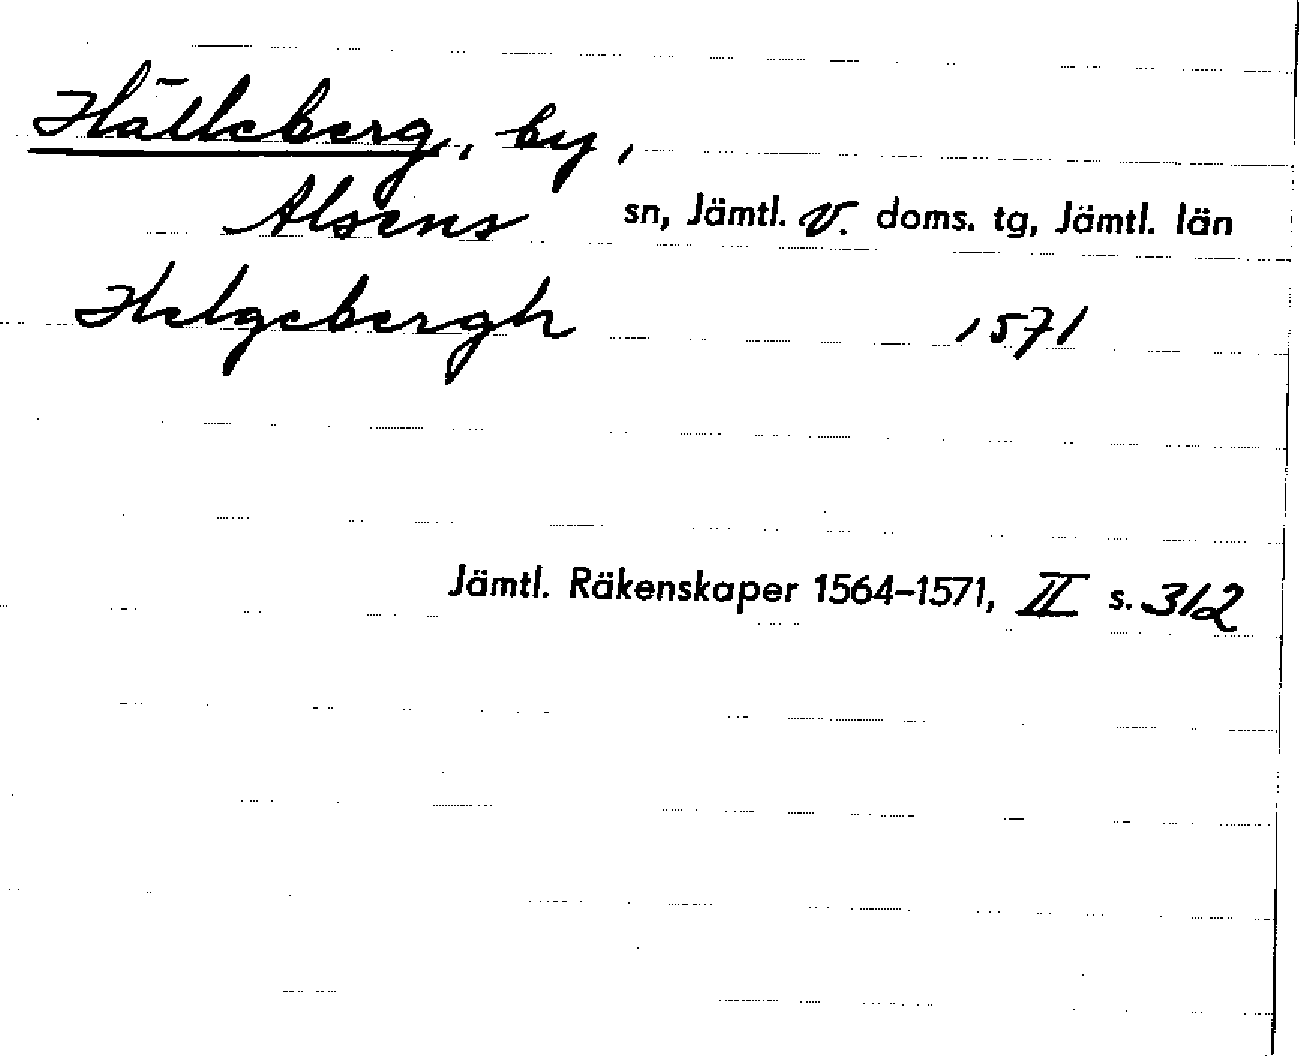 Hälleberg, by,
Alsens sn, Jämtl. v. doms. tg, Jämtl. län
Helgebergh 1571
Jämtl. Räkenskaper 1564-1571, II s. 312